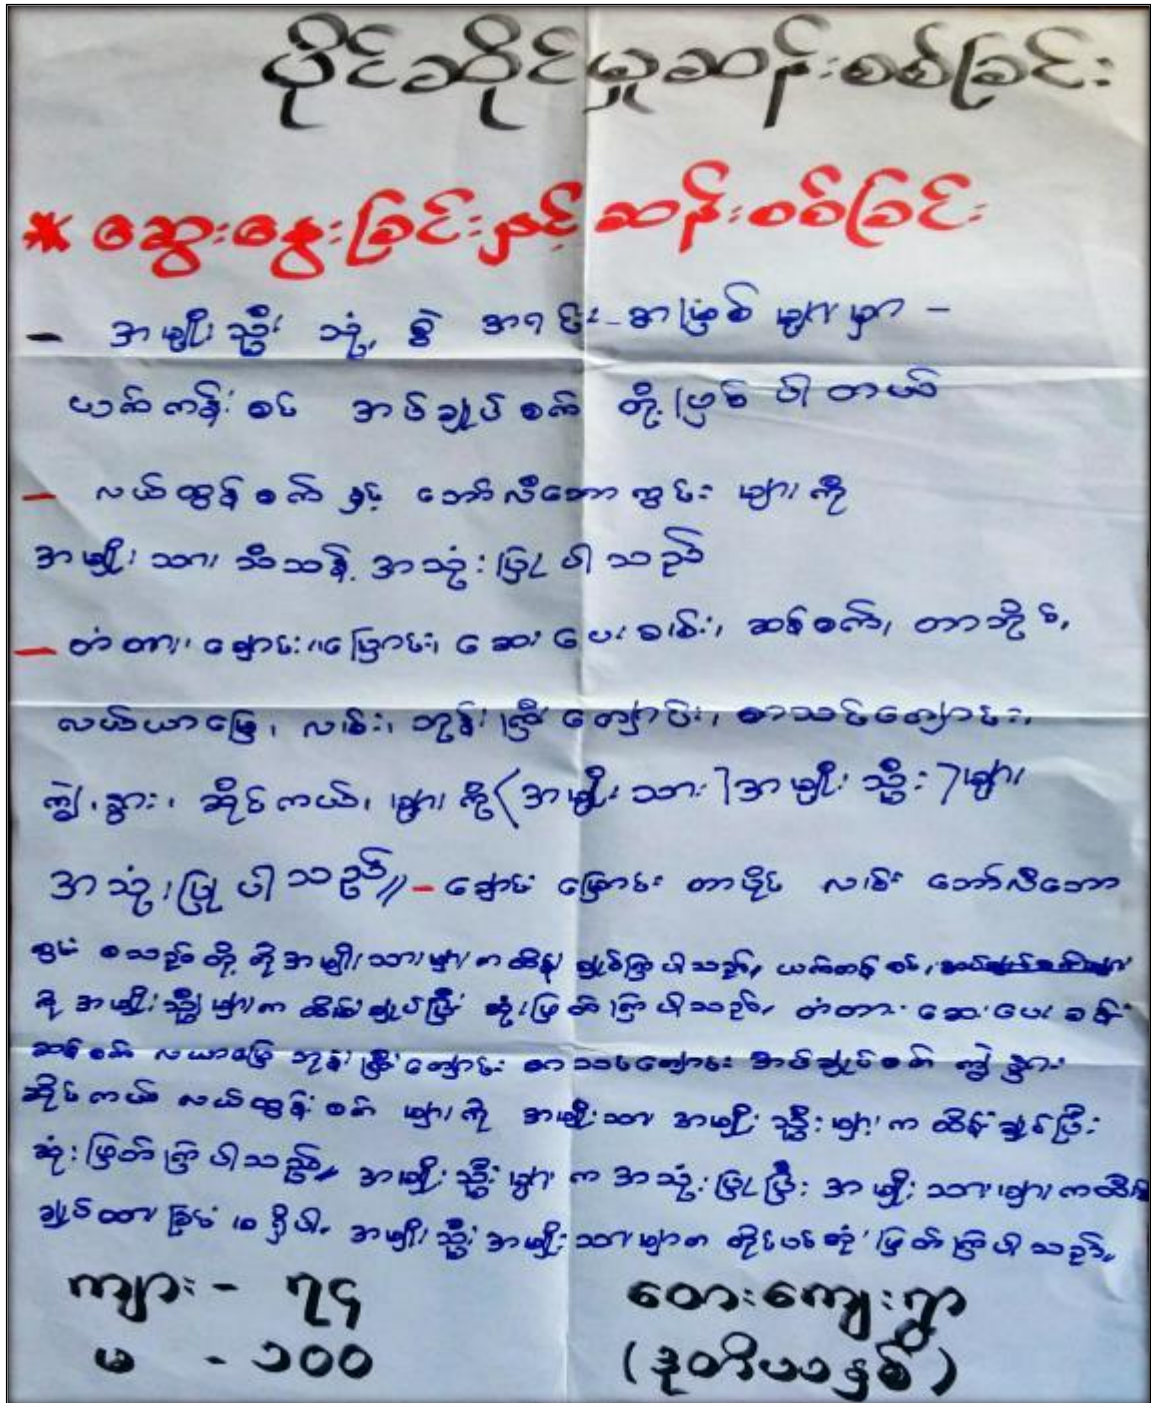 ပိုင်ဆိုင်မှုဆန်းစစ်ခြင်း
* ဆွေးနွေးခြင်းနှင့် ဆန်းစစ်ခြင်း
- အမျိုးသမီး သုံ့ စွဲ အရင်း-အမြစ် များမှာ -
ယက်ကန်းစင် အပ်ချုပ်စက် တို့ဖြစ်ပါတယ်
- လယ်ထွန်စက် နှင့် ဘော်လီဘောကွင်း များကို
အမျိုးသား သီသန့် အသုံးပြုပါသည်
- တံတား၊ ချောင်း၊ မြောင်း၊ ဆေးပေးခန်း၊ ဆန်စက်၊ တာဘိုင်၊
လယ်ယာမြေ၊ လမ်း၊ ဘုန်းကြီးကျောင်း၊ စာသင်ကျောင်း၊
ကျွဲ၊ နွား၊ ဆိုင်ကယ်၊ များ ကို (အမျိုးသား) အမျိုးသမီး) များ
အသုံးပြုပါသည်။ - ချောင်း မြောင်း တာဘိုင် လမ်း ဘော်လီဘော
ကွင်း စသည်တို့ ကိုအမျိုးသားများကထိန်းချုပ်ကြပါသည်၊ ယက်ကန်းစင်၊
ကို အမျိုးသမီးများက ထိန်းချုပ်ပြီး ဆုံးဖြတ်ကြပါသည်၊ တံတား ဆေးပေးခန်း
ဆန်စက် လယာမြေ ဘုန်းကြီးကျောင်း စာသင်ကျောင်း အပ်ချုပ်စက် ကျွဲ နွား
ဆိုင်ကယ် လယ်ထွန်းစက် များကို အမျိုးသား အမျိုးသမီးများက ထိန်းချုပ်ပြီး
ဆုံးဖြတ်ကြပါသည်။ အမျိုးသမီးများ က အသုံးပြုပြီး အမျိုးသားများကထိန်း
ချုပ်ထားခြင်း မရှိပါ။ အမျိုးသမီး အမျိုးသားများက တိုင်ပင်ဆုံးဖြတ်ကြပါသည်။
ကျား - ၇၄
မ - ၁၀၀
တေးကျေးရွာ
(ဒုတိယနှစ်)